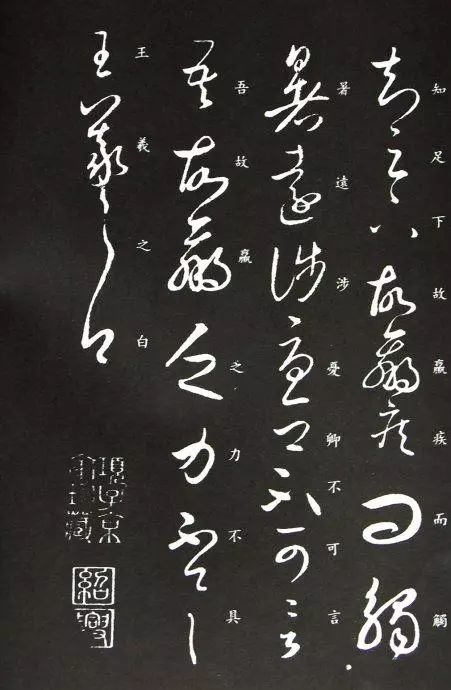 知足下故羸疾而觸
暑遠涉憂卿不可言
吾故羸之力不具
王羲之白
項子京
家珍藏